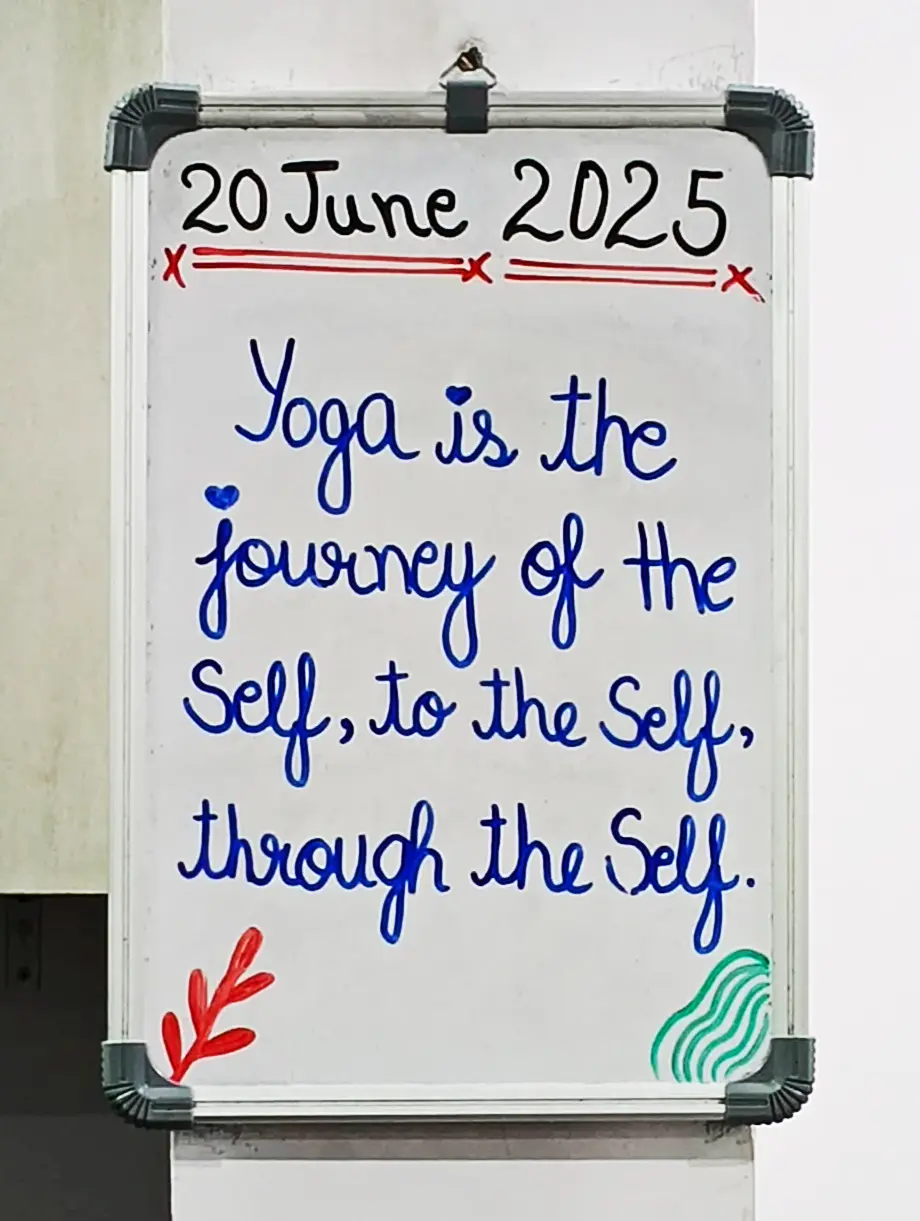 20 June 2025
Yoga is the
journey of the
Self, to the Self,
through the Self.